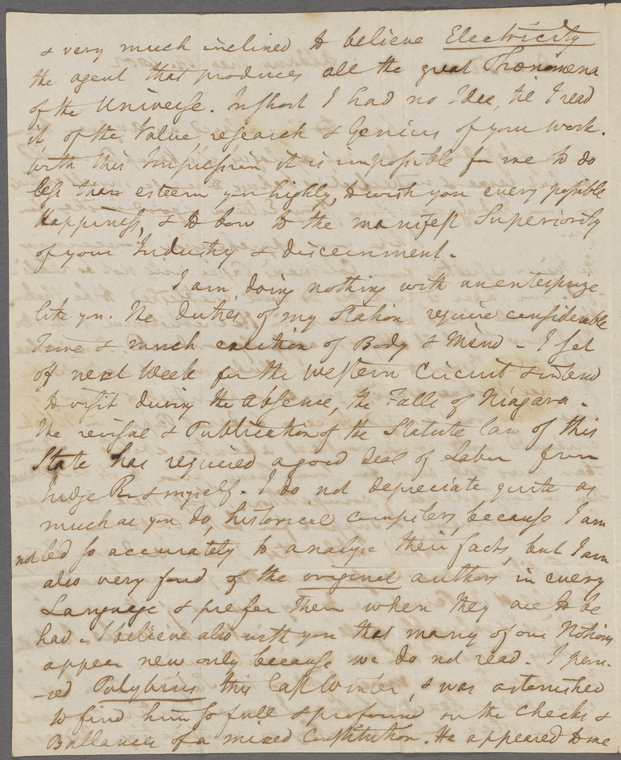 & very much inclined to believe Electricity
the agent that produces all the great Phœnomena
of the Universe. In short I had no Idee, til I read
it, of the Value research & Genius of your work.
With this Impression it is impossible for me to do
less than esteem you highly, & wish you every possible
Happiness, & to bow to the manifest Superiority
of your Industry & discernment.
I am, doing nothing with an enterprize
like you. The duties of my Station require considerable
Time & much exertion of Body & Mind - I set
off next Week for the Western Circuit & intend
to visit during the absence, the Falls of Niagara.
The revisal & Publication of the Statute law of this
State has required a good deal of Labor from
Judge R & myself. I do not depreciate quite as
much as you do, historical compilers, because I am
not led so accurately to analyse their facts, but I am
also very fond of the original authors in every
Language & prefer them when they are to be
had. I believe also with you that many of our Notions
appear new only because we do not read. I peru-
-sed Polybius this last Winter, & was astonished
to find him so full & profound on the checks &
Ballances of a mixed Constitution. He appeared to me